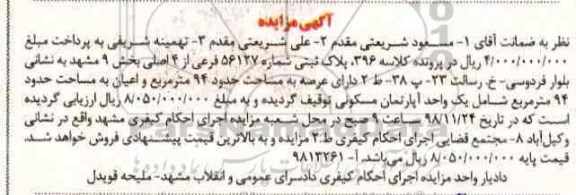 آگهی مزایده
نظر به ضمانت آقای ۱- مسعود شریعتی مقدم ۲- علی شریعتی مقدم ۳- تهمینه شریفی به پرداخت مبلغ
۴/۰۰۰/۰۰۰/۰۰۰ ریال در پرونده کلاسه ۳۹۶، پلاک ثبتی شماره ۵۶۱۲۷ فرعی از ۴ اصلی بخش ۹ مشهد به نشانی
بلوار فردوسی- خ. رسالت ۲۳- پ ۳۸- ط ۲ دارای عرصه به مساحت حدود ۹۴ مترمربع و اعیان به مساحت حدود
۹۴ مترمربع شامل یک واحد آپارتمان مسکونی توقیف گردیده و به مبلغ ۸/۰۵۰/۰۰۰/۰۰۰ ریال ارزیابی گردیده
است که در تاریخ ۹۸/۱۱/۲۴ ساعت ۹ صبح در محل شعبه مزایده اجرای احکام کیفری مشهد واقع در نشانی
وکیل‌آباد ۸- مجتمع قضایی اجرای احکام کیفری ط ۲ مزایده و به بالاترین قیمت پیشنهادی فروش خواهد شد.
قیمت پایه ۸/۰۵۰/۰۰۰/۰۰۰ ریال می‌باشد. آ- ۹۸۱۳۲۶۱
دادیار واحد مزایده اجرای احکام کیفری دادسرای عمومی و انقلاب مشهد- ملیحه قویدل